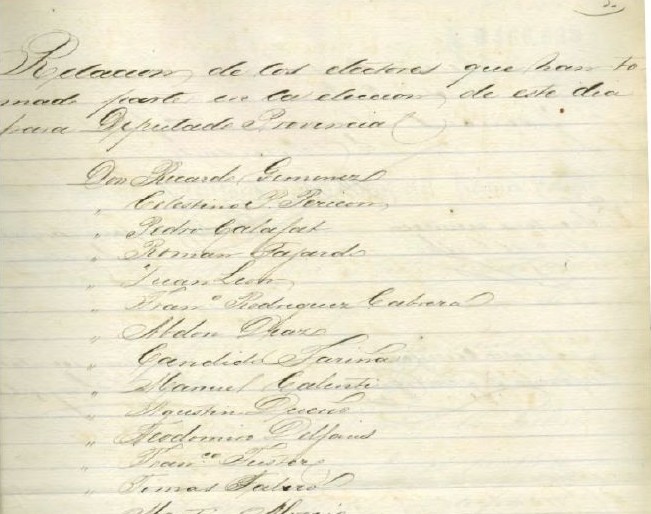 Relacion de los electores que han to
mado parte en la eleccion de este dia
para Deputado Provincial
Don Ricardo Gimenez
" Celestino P. Pericon
" Pedro Calafat
" Roman Fajardo
" Juan Leon
" Fran.º Rodriguez Cabrera
" Abdon Diaz
" Candido Fariña
" Manuel Calenti
" Agustin
" Teodomiro
" Fran.co Fuster
" Tomas